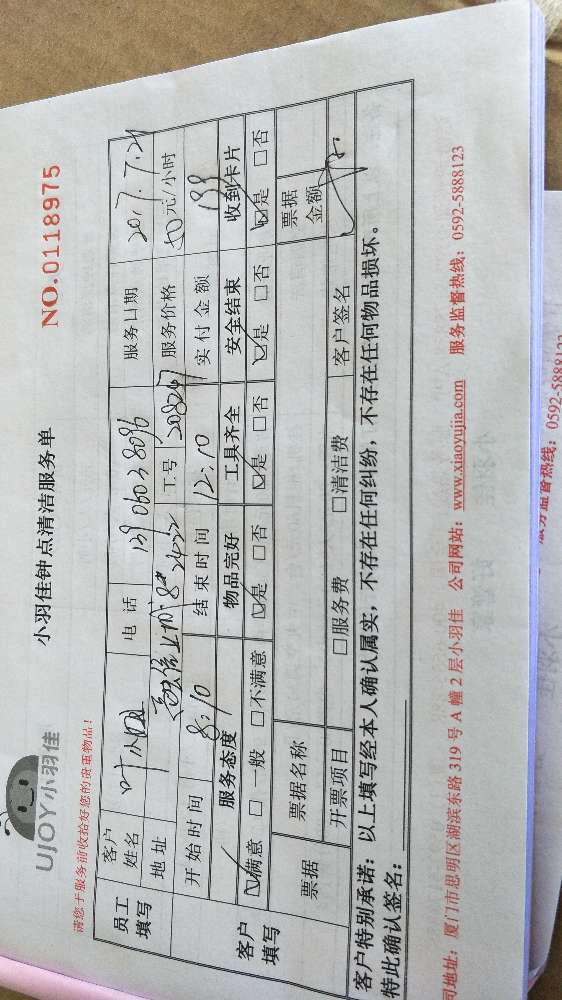 UJOY小羽佳
小羽佳钟点清洁服务单
NO.0118975
请您于服务前收拾好您的贵重物品!
员工填写
客户姓名 叶小姐 电话 139 0603 8096 服务日期 2017.7.21
地址 8# 2422 工号 208247 服务价格 50元/小时
客户填写
开始时间 8:10 结束时间 12:10 实付金额 199
服务态度 物品完好 工具齐全 安全结束 收到卡片
☑满意 □一般 □不满意 ☑是 □否 ☑是 □否 ☑是 □否 ☑是 □否
票据 票据名称 票据金额
开票项目 □服务费 □清洁费 客户签名
客户特别承诺:以上填写经本人确认属实,不存在任何纠纷,不存在任何物品损坏。
特此确认签名:
司地址:厦门市思明区湖滨东路 319 号 A 幢 2 层小羽佳 公司网站:www.xiaoyujia.com 服务监督热线:0592-5888123
服务监督热线:0592-5888123